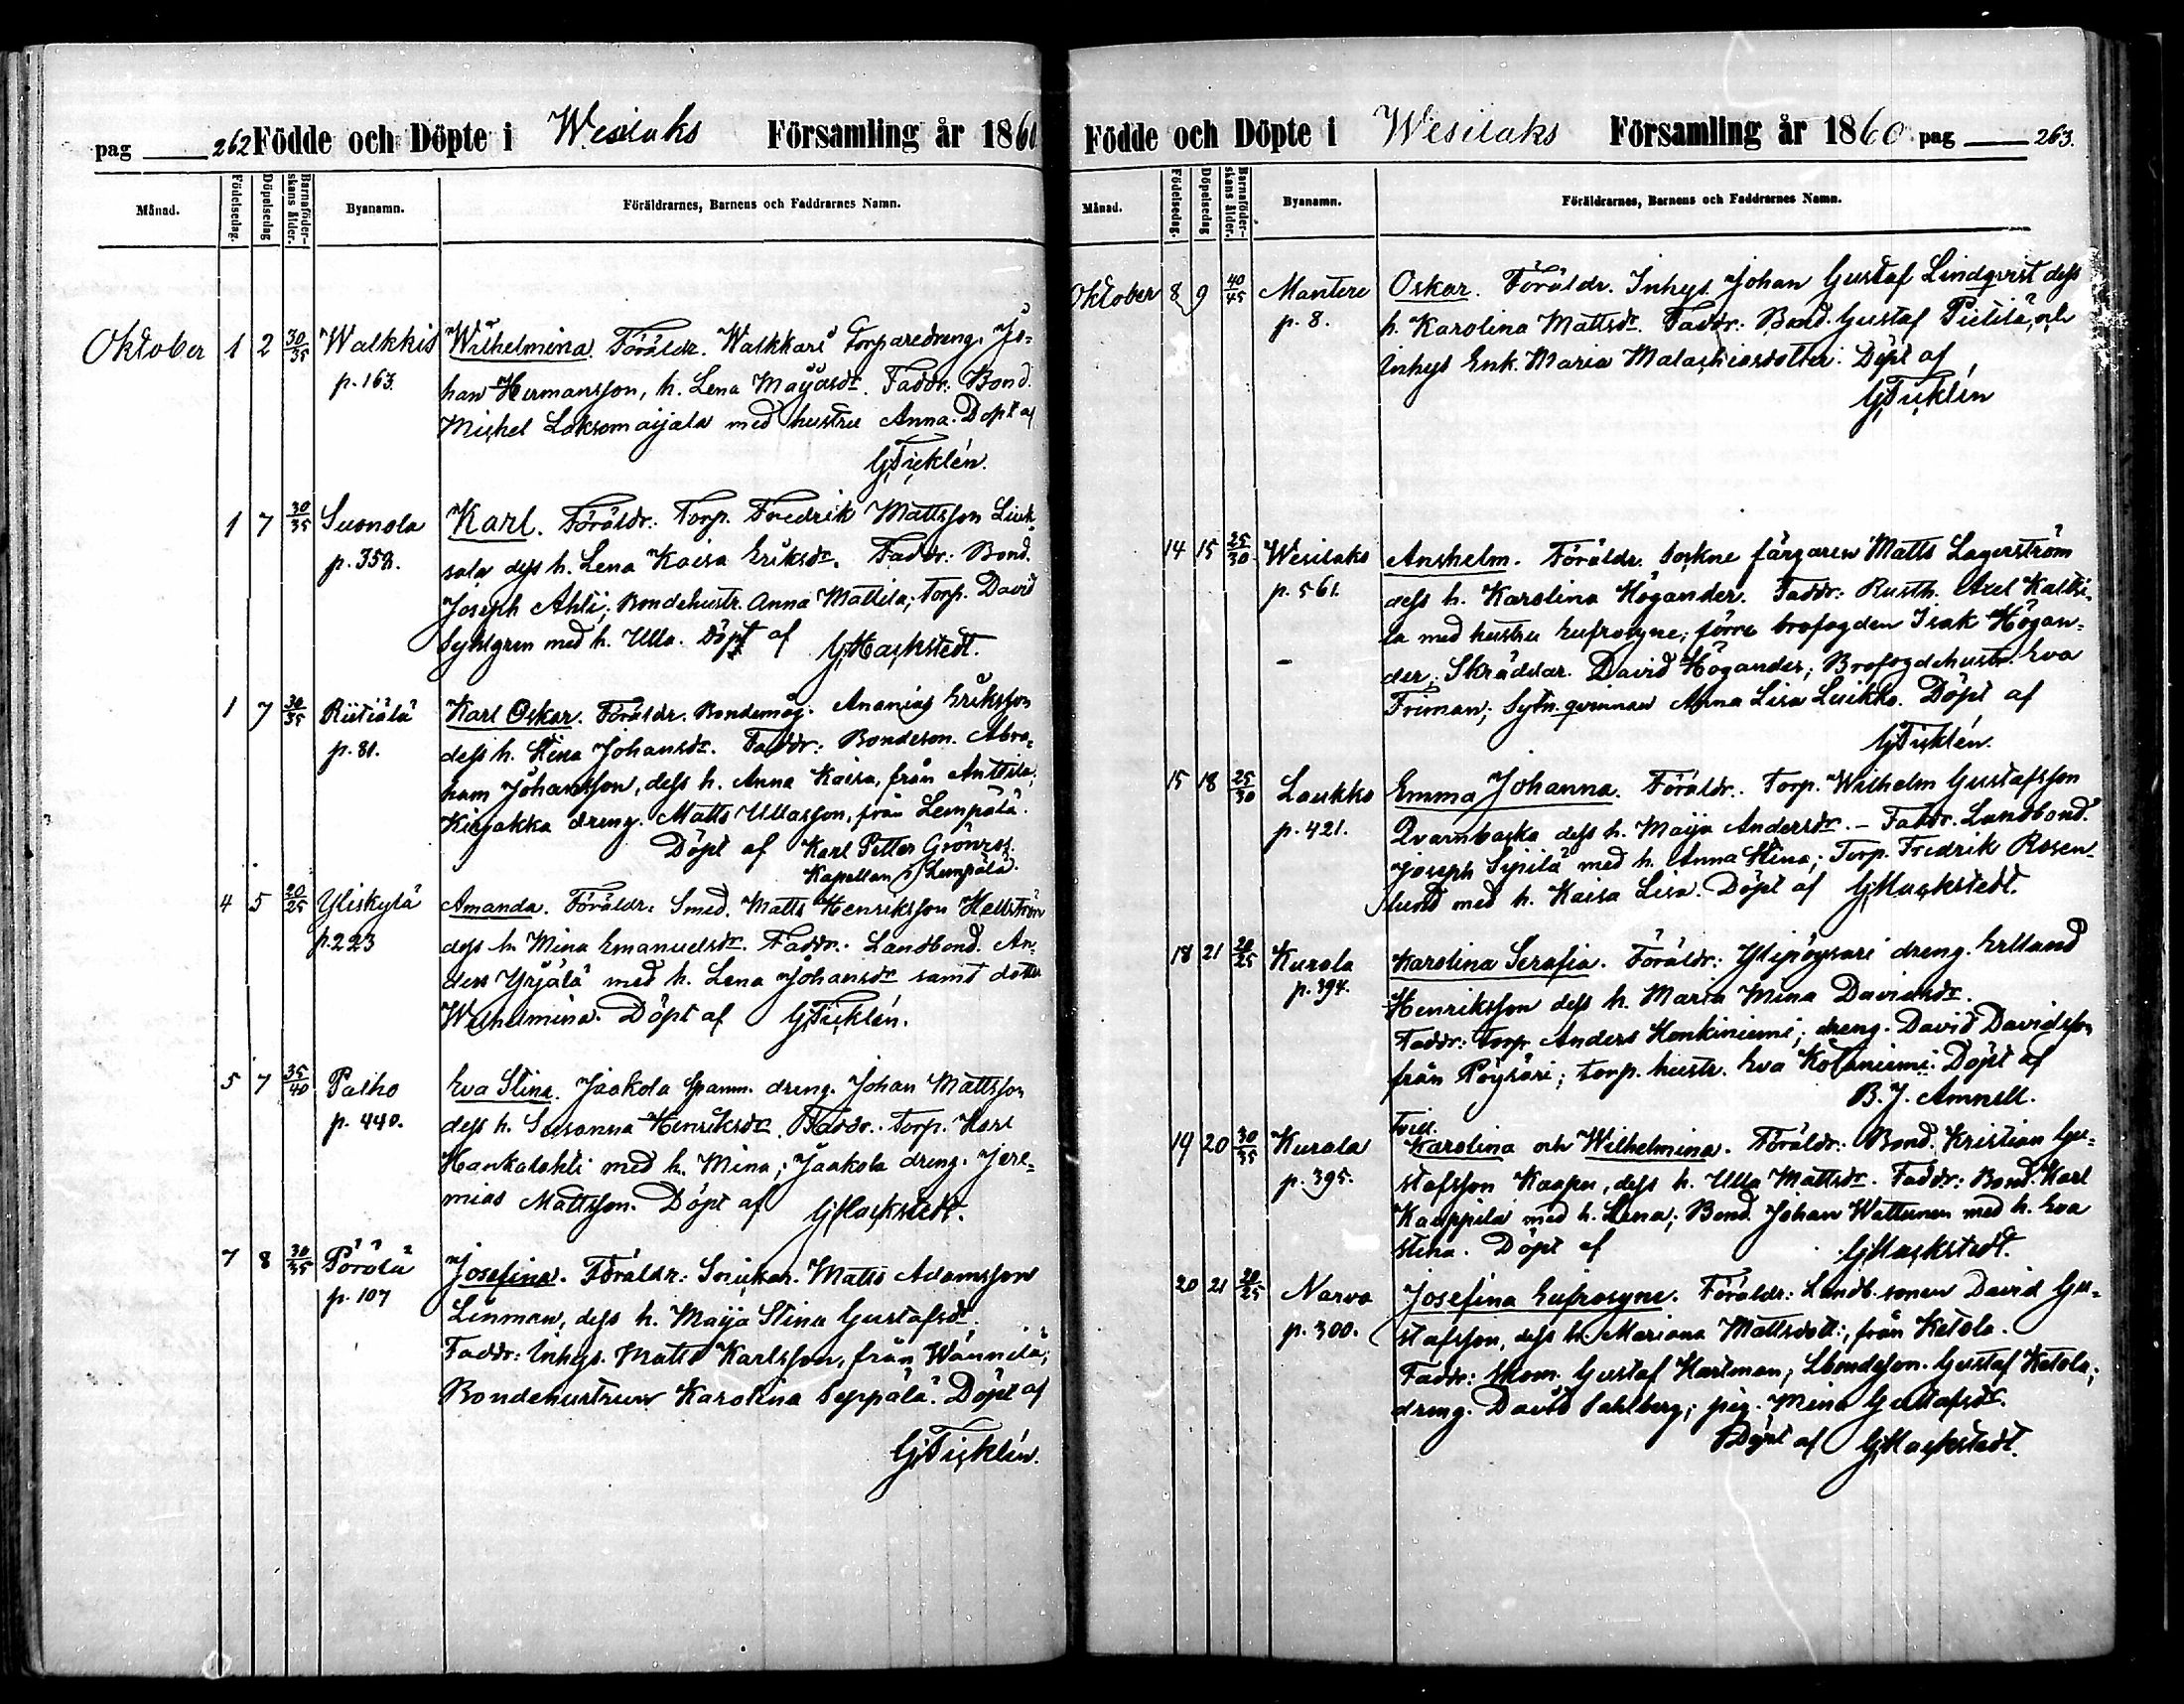 pag 262 Födde och Döpte i Wesilaks Församling år 1860
Månad. Födelsedag. Döpelsedag Barnaföderskans ålder. Bysnamn. Föräldrarnes, Barnens och Faddrarnes Namn.
Oktober 1 2 30/35 Walkkis Wilhelmina. Föräldr. Walkkari Torparedreng. Jo-
p. 163. han Hermansson, h. Lena Maijasdr. Faddr: Bond.
Michel Laksomaijala med hustru Anna. Döpt af
G. Ticklén.
1 7 30/35 Suonola Karl. Föräldr: Torp. Fredrik Mattsson
p. 352. sala dess h. Lena Kaisa Eriksdr. Faddr: Bond.
Joseph Ahti; Bondehustr. Anna Mattila; Torp. David
Syhlgren med h. Ulla. Döpt af G. Hackstedt.
1 7 30/35 Riitiälä Karl Oskar. Föräldr. Bondemåg. Ananias Eriksson
p. 81. dess h. Stina Johansdr. Faddr: Bondeson. Abra-
ham Johansson, dess h. Anna Kaisa, från Anttila;
Kirjakka dreng. Matts Ullasson, från Lempälä.
Döpt af Karl Petter Grönroos
Kapellan i Lempälä.
4 5 20/25 Yliskylä Amanda. Föräldr: Smed. Matts Henriksson Hellström
p. 223 dess h. Mina Emanuelsdr. Faddr. Landbond. An-
ders Yrjälä med h. Lena Johansdr samt dotter
Wilhelmina. Döpt af G. Ticklén.
5 7 35/40 Palho Eva Stina. Jaakola Spanm. dreng. Johan Mattsson
p. 440. dess h. Susanna Henriksdr. Faddr. Torp. Karl
Hankalahti med h. Mina; Jaakola dreng. Jere-
mias Mattsson. Döpt af G. Hackstedt.
7 8 30/35 Pörölä Josefina. Föräldr: Snickar. Matts Adamsson
p. 107 Linman, dess h. Maija Stina Gustafsdr.
Faddr: Inhys. Matts Karlsson, från Wännilä;
Bondehustrun Karolina Seppälä. Döpt af
G. Ticklén.
Födde och Döpte i Wesilaks Församling år 1860. pag 263.
Månad. Födelsedag. Döpelsedag Barnaföderskans ålder. Bysnamn. Föräldrarnes, Barnens och Faddrarnes Namn.
Oktober 8 9 40/45 Mantere Oskar. Föräldr. Inhys. Johan Gustaf Lindqvist dess
p. 8. h. Karolina Mattsdr. Faddr: Bond. Gustaf Pietilä, och
Inhys Enk. Maria Malachiasdotter. Döpt af
G. Ticklén
14 15 25/30 Wesilaks Anshelm. Föräldr. Sockne färgaren Matts Lagerström
p. 561. dess h. Karolina Högander. Faddr: Rusth. Axel Kaltsi-
la med hustru Eufrosyne; förre brofogden Isak Högan-
der; Skräddar. David Högander; Brofogdehustr. Eva
Friman; Sytn. qvinnan Anna Lisa Luikko. Döpt af
G. Ticklén.
15 18 25/30 Laukko Emma Johanna. Föräldr. Torp. Wilhelm Gustafsson
p. 421. Qvarnbacka dess h. Maija Andersdr. – Faddr. Landbond.
Joseph Sipilä med h. Anna Stina; Torp. Fredrik Rosen-
lund med h. Kaisa Lisa. Döpt af G. Hackstedt.
18 21 20/25 Kurala Karolina Serafia. Föräldr: Ylipöysari dreng. Erland
p. 394. Henriksson dess h. Maria Mina Davidsdr.
Faddr: Torp. Anders Honkiniemi; dreng. David Davidsson
från Pöysäri; torp. hustr. Eva Kotiniemi. Döpt af
B. J. Amnell.
Tvill.
19 20 30/35 Kurala Karolina och Wilhelmina. Föräldr: Bond. Kristian Gu-
p. 395. stafsson Kaapu, dess h. Ulla Mattsdr. Faddr: Bond. Karl
Kauppila med h. Lena; Bond. Johan Wattunen med h. Eva
Stina. Döpt af G. Hackstedt.
20 21 20/25 Narva Josefina Eufrosyne. Föräldr: Landb. sonen David Gu-
p. 300. stafsson, dess h. Mariana Mattsdott:, från Ketola.
Faddr: Skom. Gustaf Hartman; Lbondeson. Gustaf Ketola;
dreng. David Sahlberg; pig. Mina Gustafsdr.
Döpt af G. Hackstedt.